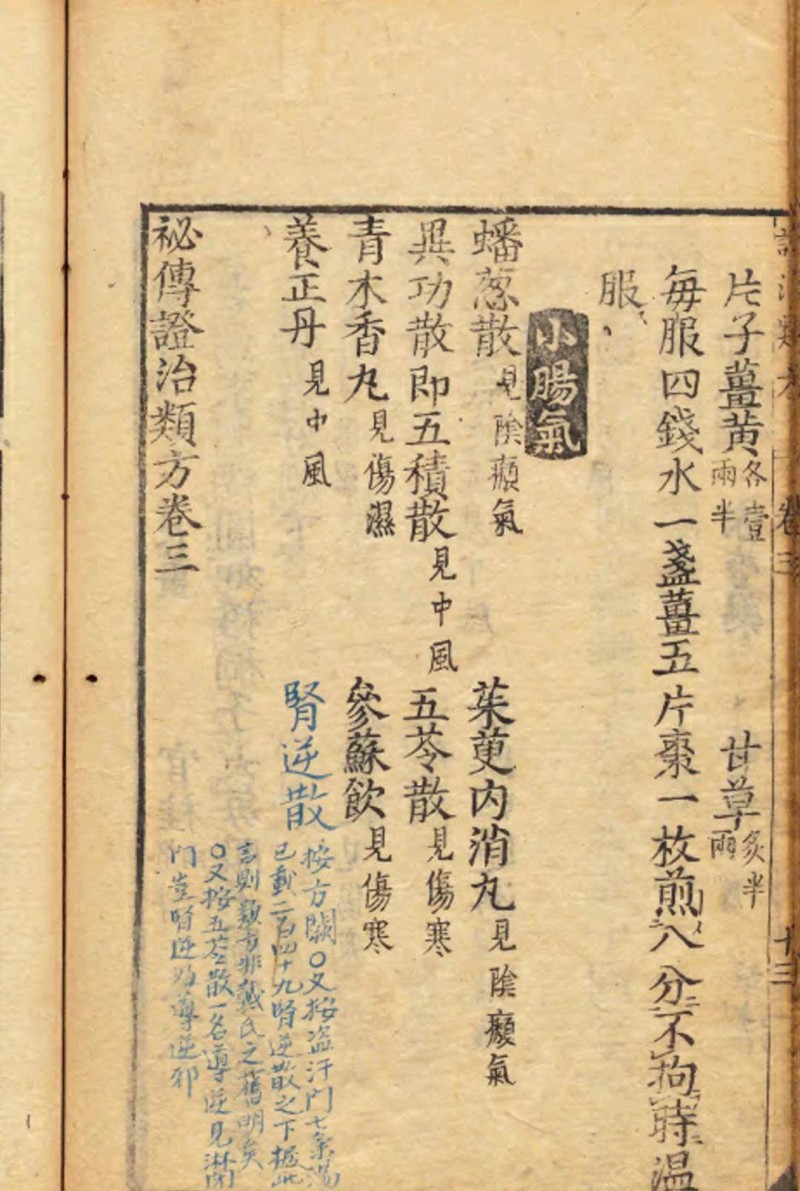 卷三 十三
片子薑黃各壹兩半 甘草炙半兩
每服四錢水一盞薑五片棗一枚煎八分不拘時溫
服
小腸氣
蟠葱散見陰㿗氣 茱萸內消丸見陰㿗氣
異功散即五積散見中風 五苓散見傷寒
青木香丸見傷濕 參蘇飲見傷寒
養正丹見中風 腎逆散
按方闕○又按盜汗門七條湯
已載二百四十九腎逆散之下據此
言則類方非戴氏之舊明矣
○又按五苓散一名導逆見淋閉
門豈腎逆乃導逆邪
祕傳證治類方卷三